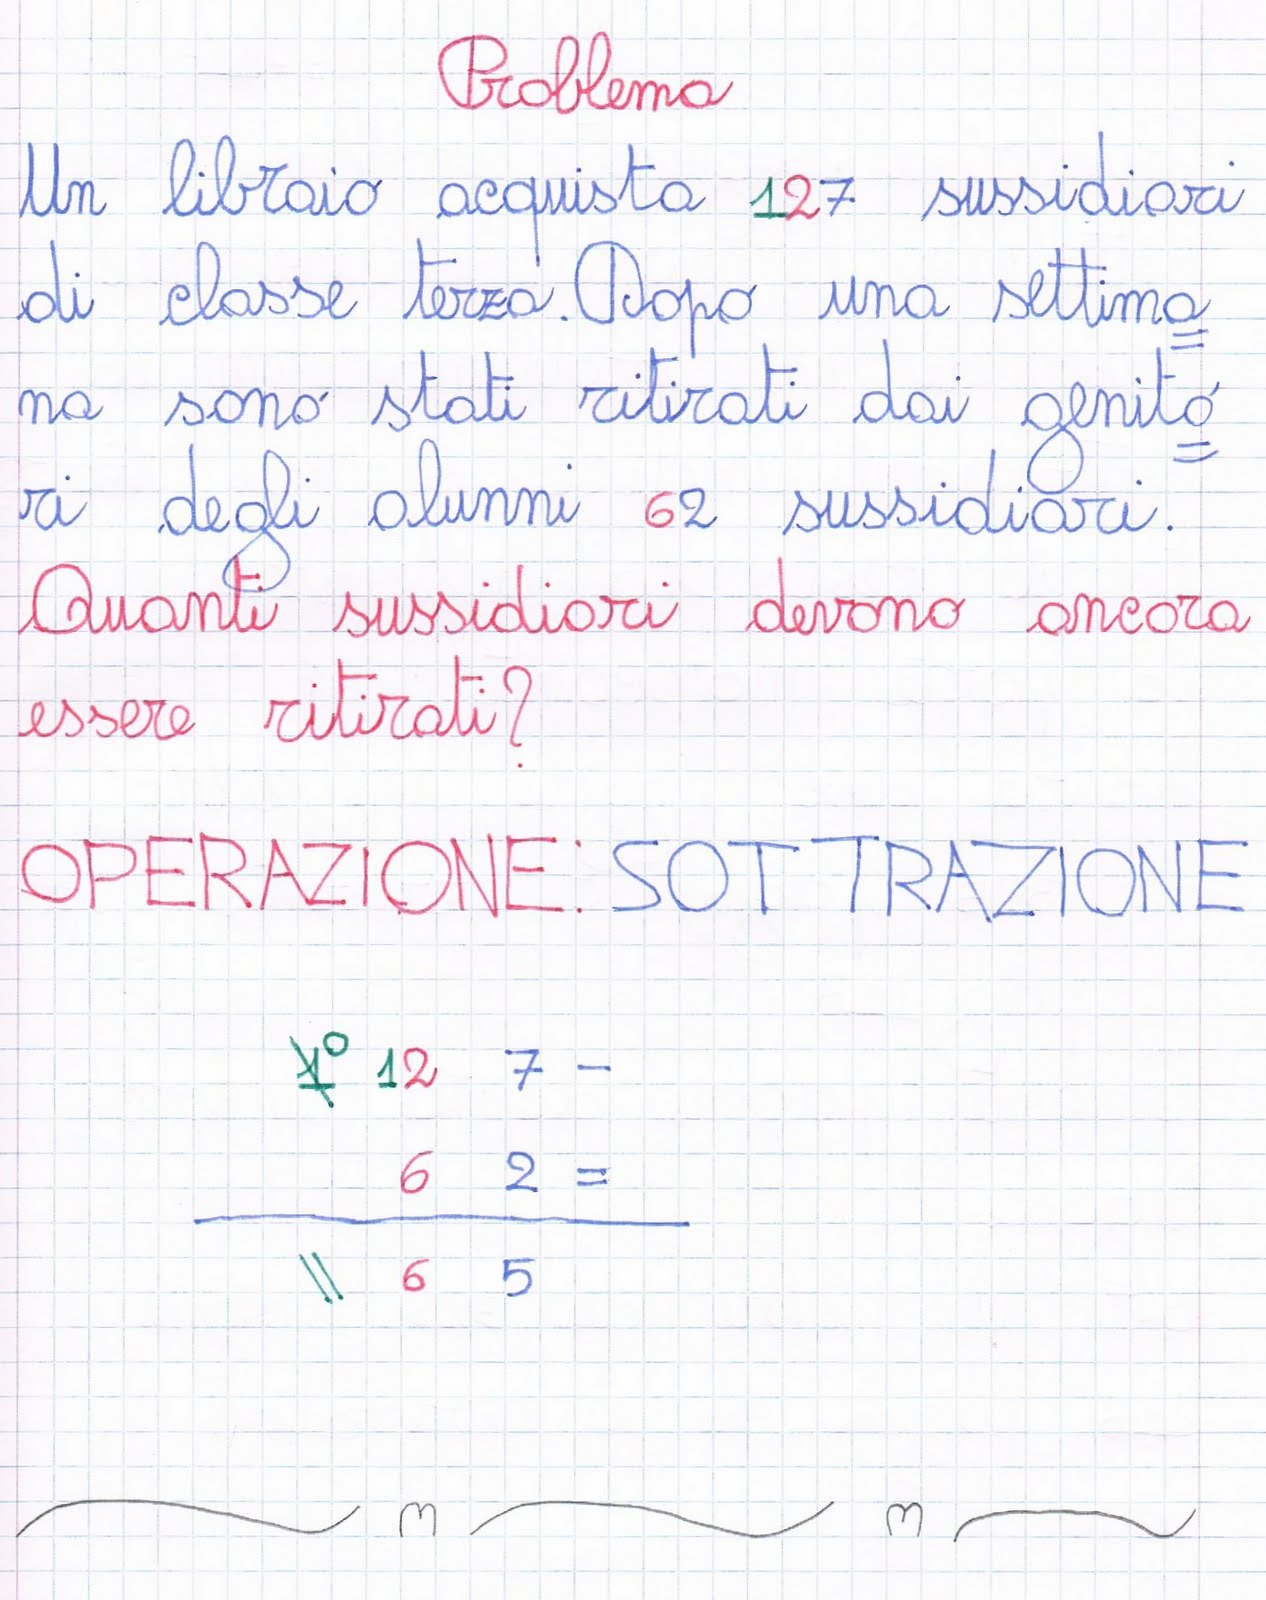 Problema
Un libraio acquista 127 sussidiari
di classe terza. Dopo una settima=
na sono stati ritirati dai genito=
ri degli alunni 62 sussidiari.
Quanti sussidiari devono ancora
essere ritirati?
OPERAZIONE: SOTTRAZIONE
1 0 12 7 -
6 2 =
\\ 6 5